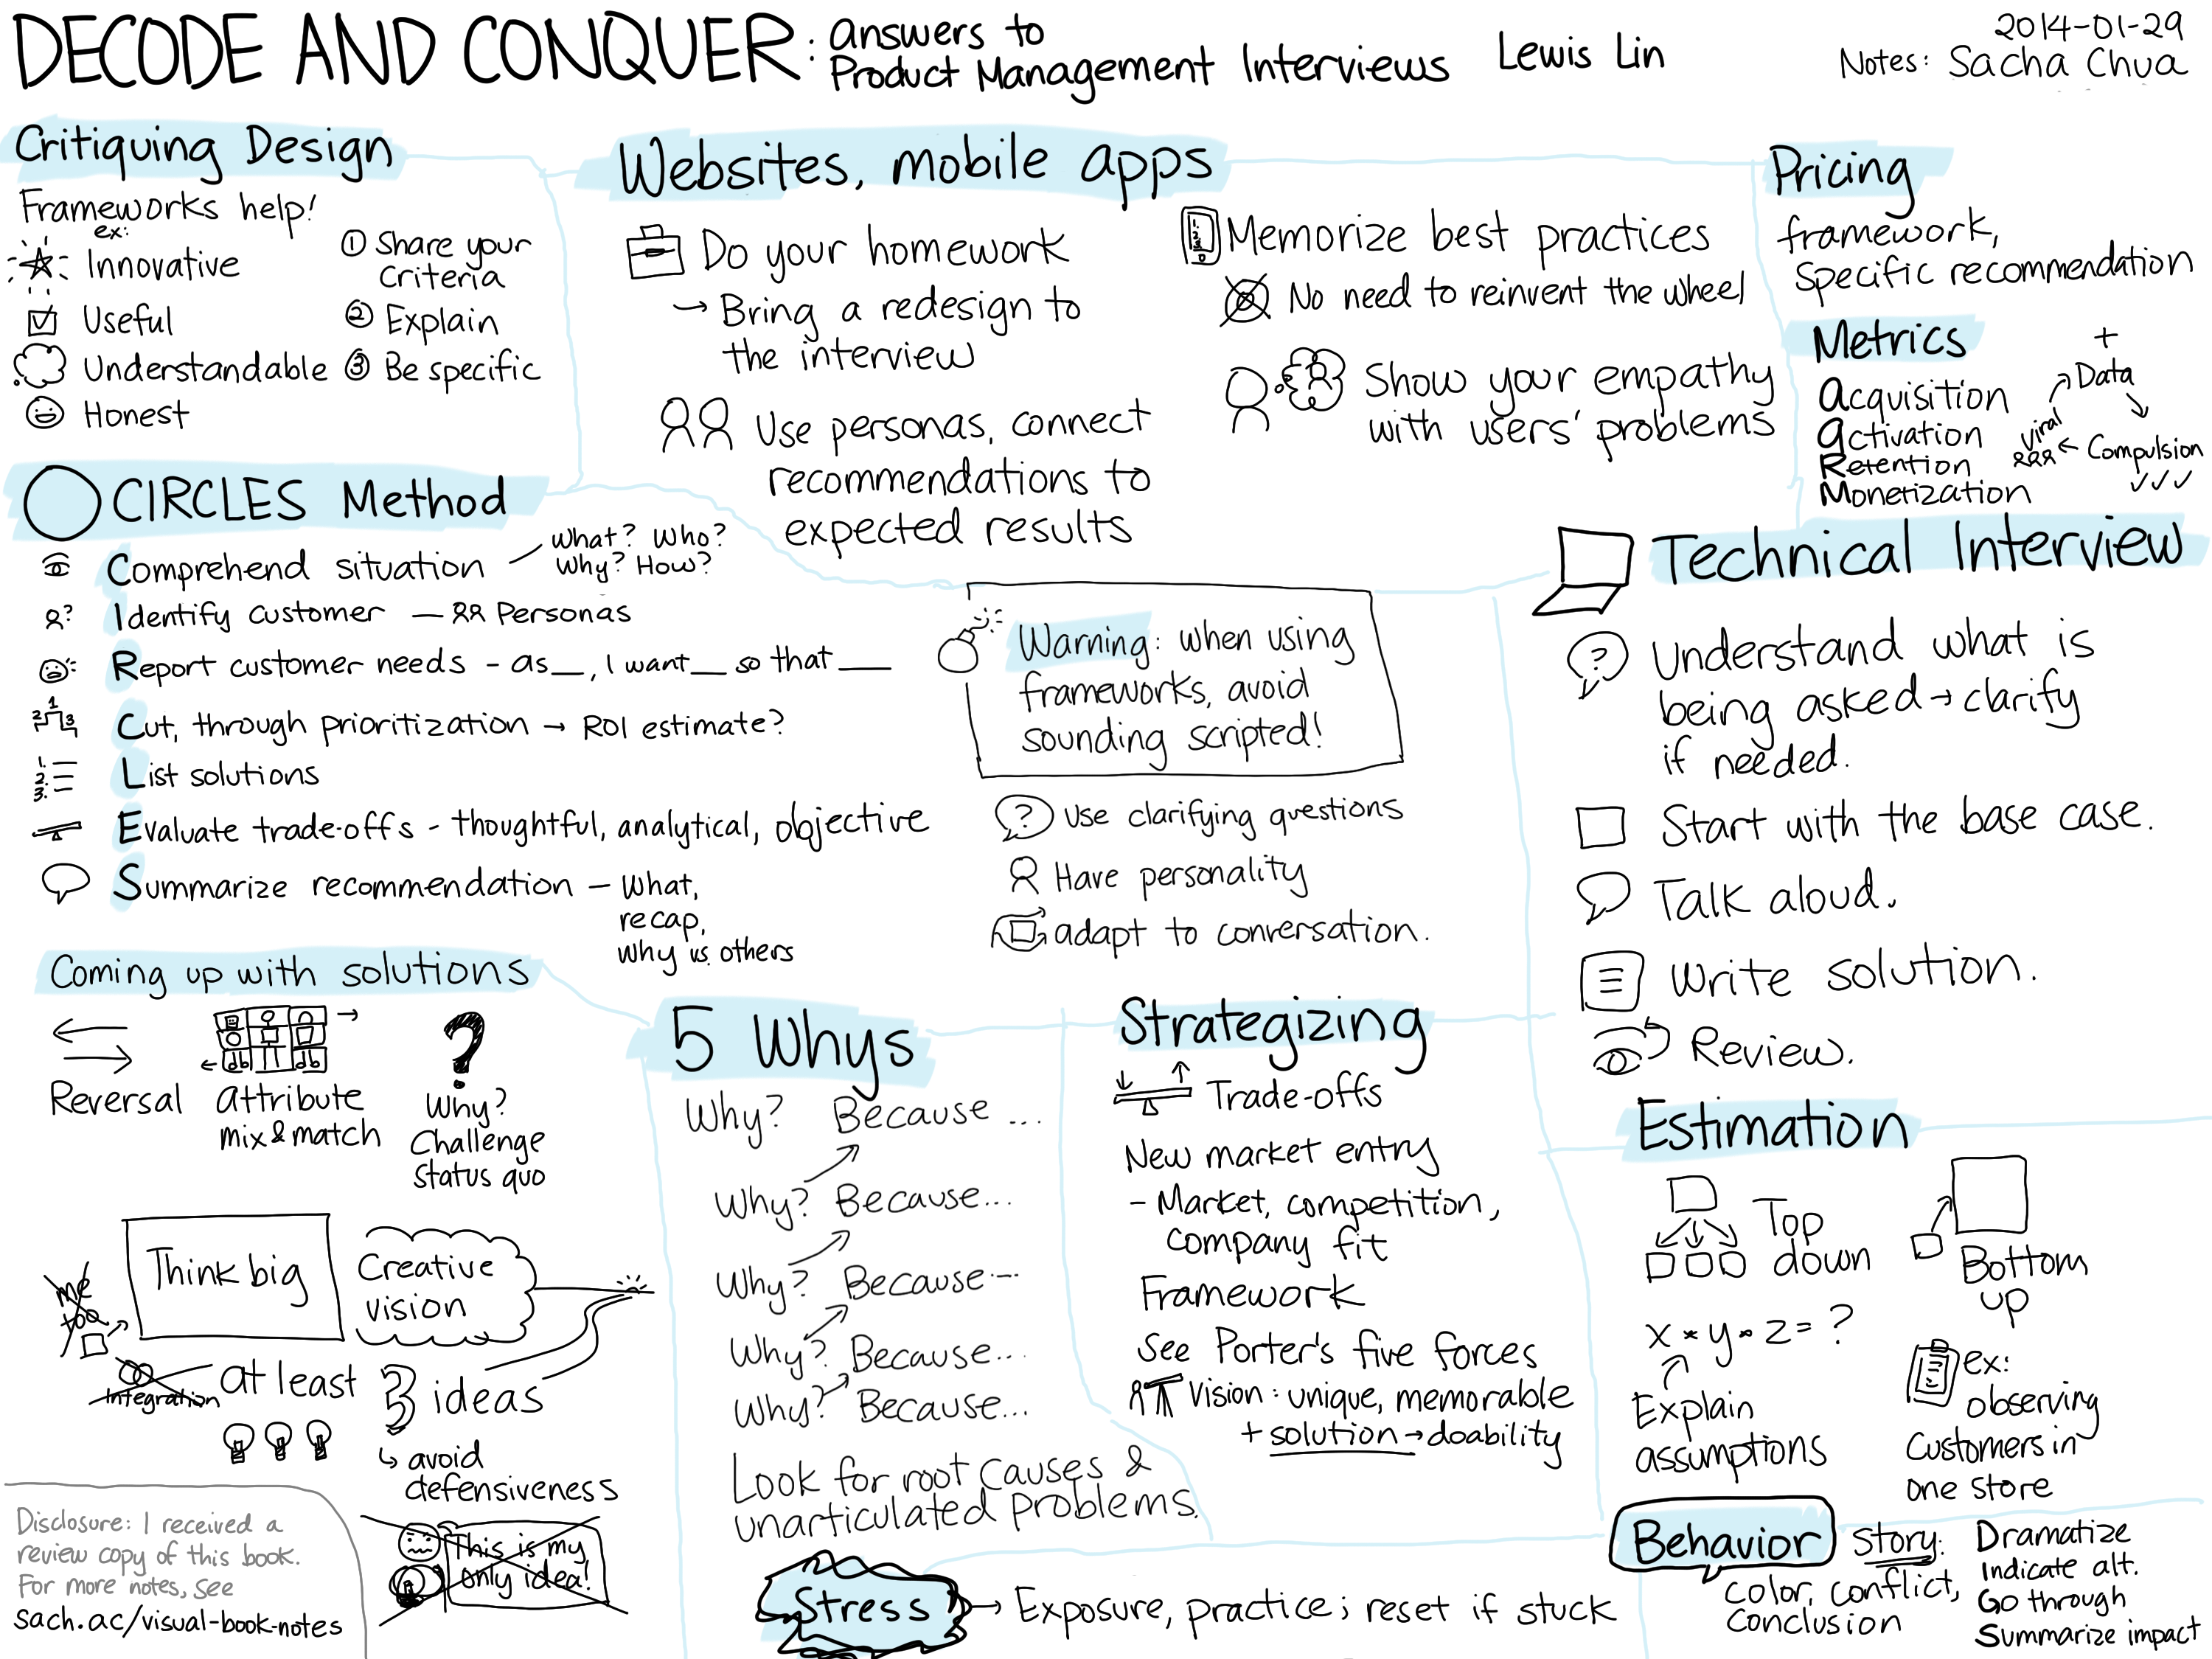 DECODE AND CONQUER: answers to
Product Management Interviews
Lewis Lin
2014-01-29
Notes: Sacha Chua
Critiquing Design
Frameworks help!
ex:
Innovative
Useful
Understandable
Honest
1 Share your
criteria
2 Explain
3 Be specific
Websites, mobile apps
Do your homework
→ Bring a redesign to
the interview
Use personas, connect
recommendations to
expected results
Memorize best practices
No need to reinvent the wheel
Show your empathy
with users' problems
Pricing
framework,
specific recommendation
Metrics
Acquisition
Activation
Retention
Monetization
+
Data
Compulsion
Viral
CIRCLES Method
Comprehend situation
What? Who?
Why? How?
Identify customer — Personas
Report customer needs - as__, I want__ so that ___
Cut, through prioritization → ROI estimate?
List solutions
Evaluate trade-offs - thoughtful, analytical, objective
Summarize recommendation — What,
recap,
why vs. others
1
2 3
1.
2.
3.
Warning: when using
frameworks, avoid
sounding scripted!
? Use clarifying questions
Have personality
adapt to conversation.
Technical Interview
? Understand what is
being asked → clarify
if needed.
Start with the base case.
Talk aloud.
Write solution.
Review.
Coming up with solutions
Reversal
attribute
mix & match
?
Why?
Challenge
status quo
Think big
Creative
vision
me
too
Integration
at least 3 ideas
↳ avoid
defensiveness
This is my
only idea!
5 Whys
Why? Because ...
Why? Because...
Why? Because...
Why? Because...
Why? Because...
Look for root causes &
unarticulated problems.
Strategizing
Trade-offs
New market entry
- Market, competition,
company fit
Framework
See Porter's five forces
Vision: unique, memorable
+ solution → doability
Estimation
Top
down
Bottom
up
x * y * z = ?
Explain
assumptions
ex:
observing
customers in
one store
Behavior
Story:
color, conflict,
conclusion
Dramatize
Indicate alt.
Go through
Summarize impact
Stress → Exposure, practice; reset if stuck
Disclosure: I received a
review copy of this book.
For more notes, see
sach.ac/visual-book-notes